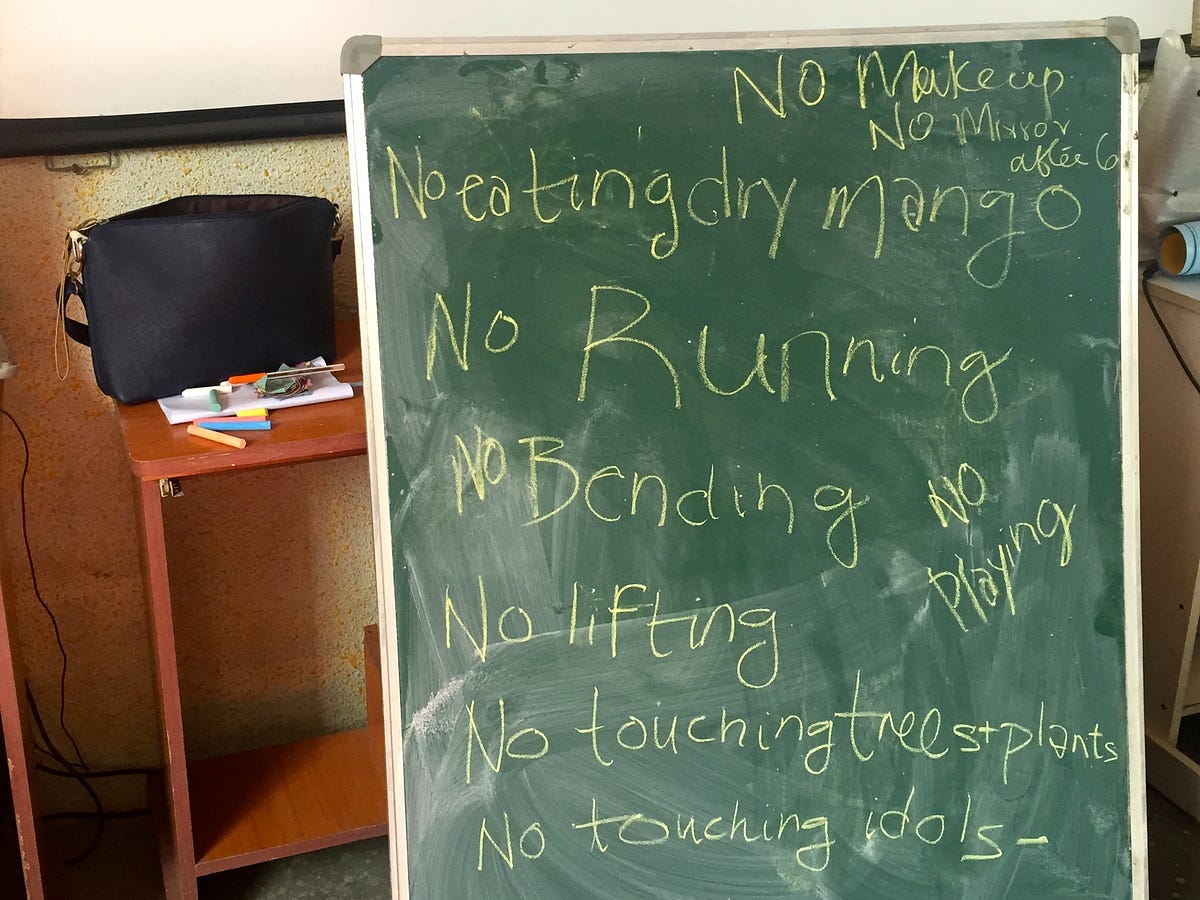 No Makeup
No Mirror
after 6
No eating dry mango
No Running
No Bending
No
Playing
No lifting
No touching trees + plants
No touching idols -